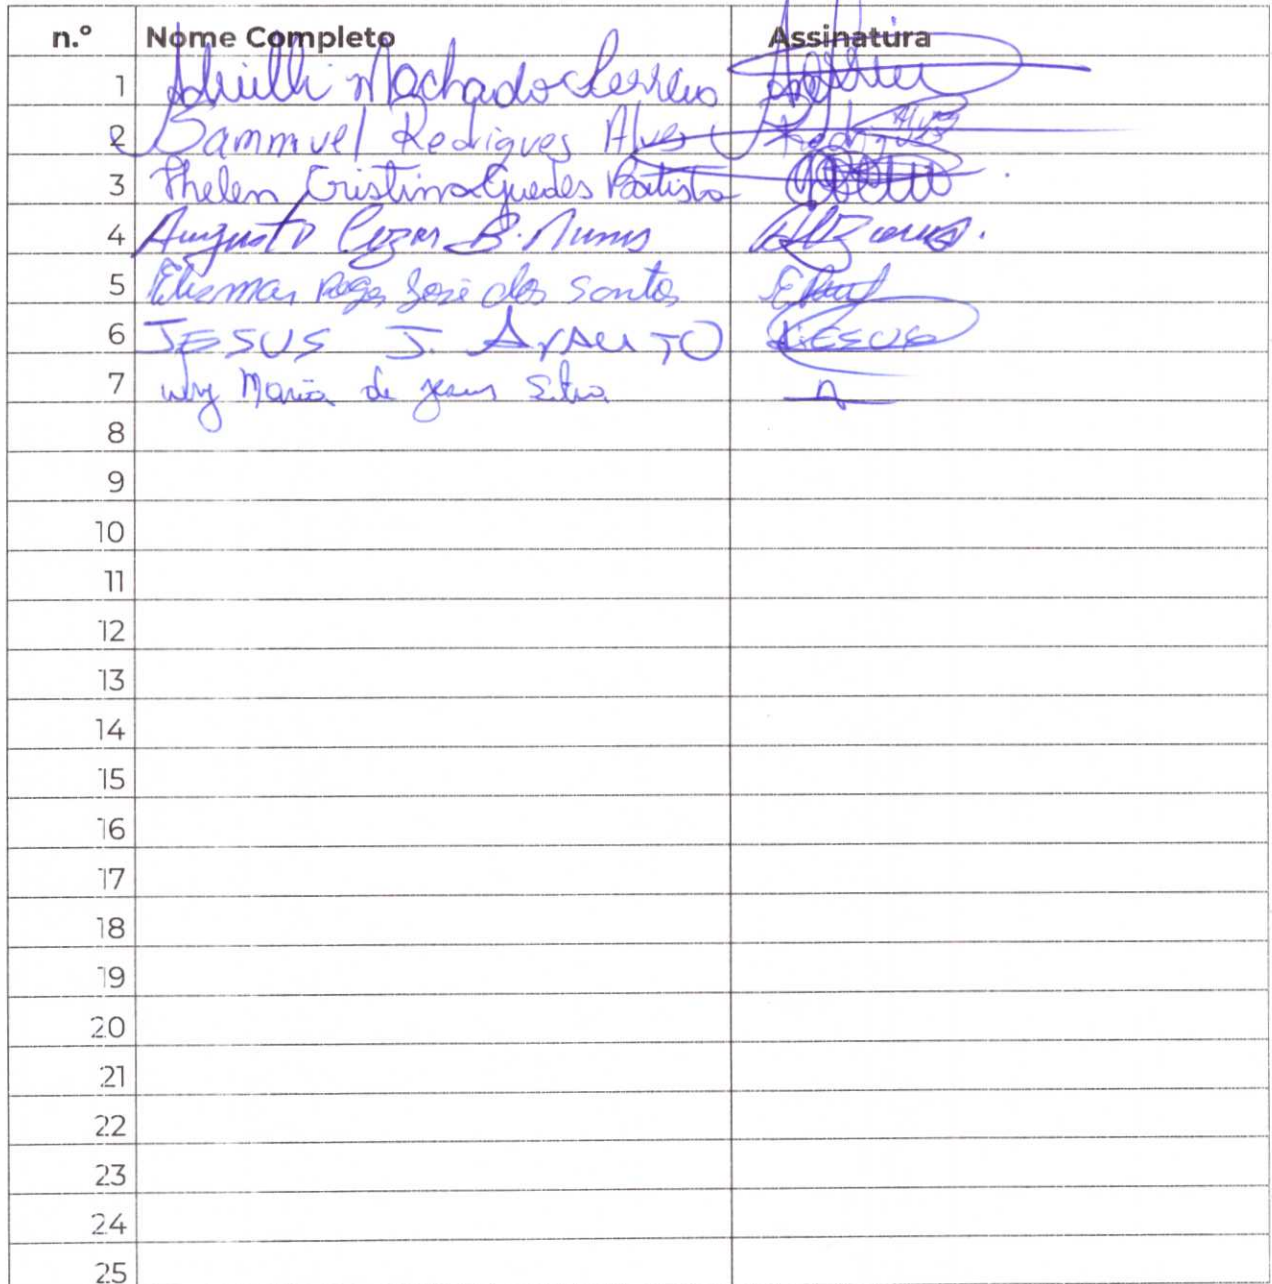 n.º Nome Completo Assinatura
1 Machado
2 Sammuel Rodrigues Alves Rodrigues Alves
3 Thelen Cristina Guedes Batista
4 Augusto Cezar B. Nunes
5 José dos Santos
6 JESUS J. ArAUJO JESUS
7 Maria de Jesus Silva
8
9
10
11
12
13
14
15
16
17
18
19
20
21
22
23
24
25